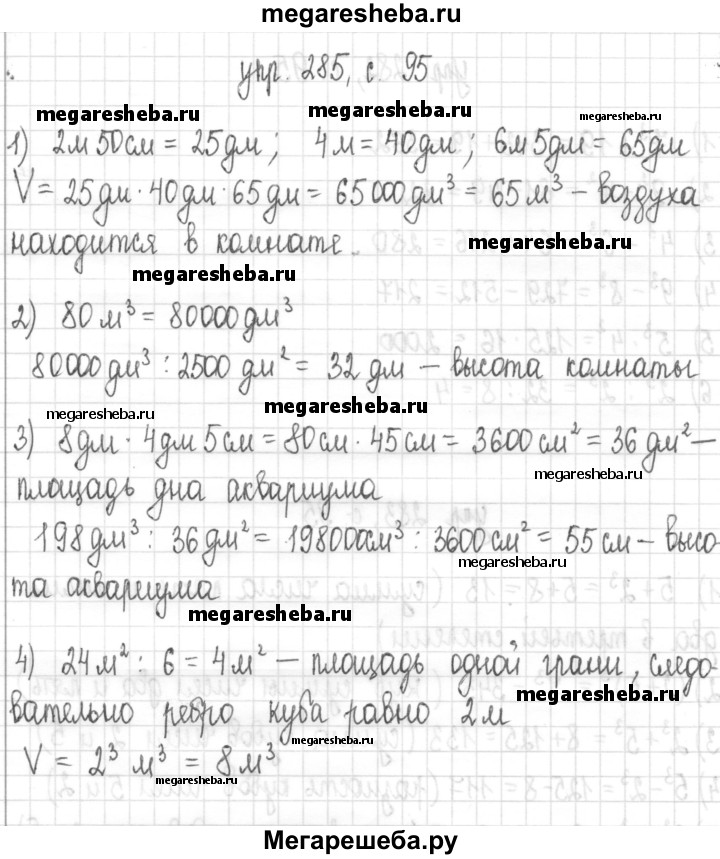 megaresheba.ru
упр. 285, с. 95
megaresheba.ru megaresheba.ru
1) 2м 50см = 25дм; 4м = 40дм; 6м 5дм = 65дм
V = 25дм · 40дм · 65дм = 65000дм³ = 65м³ – воздуха
находится в комнате. megaresheba.ru
megaresheba.ru
2) 80м³ = 80000дм³
80000дм³ : 2500 дм² = 32 дм – высота комнаты
megaresheba.ru megaresheba.ru
3) 8дм · 4дм 5см = 80см · 45см = 3600см² = 36дм² –
megaresheba.ru
площадь дна аквариума
198дм³ : 36дм² = 198000см³ : 3600см² = 55см – высо-
та аквариума
megaresheba.ru
4) 24м² : 6 = 4м² – площадь одной грани, следо-
megaresheba.ru
вательно ребро куба равно 2м
megaresheba.ru
V = 2³ м³ = 8м³
megaresheba.ru
Мегарешеба.ру